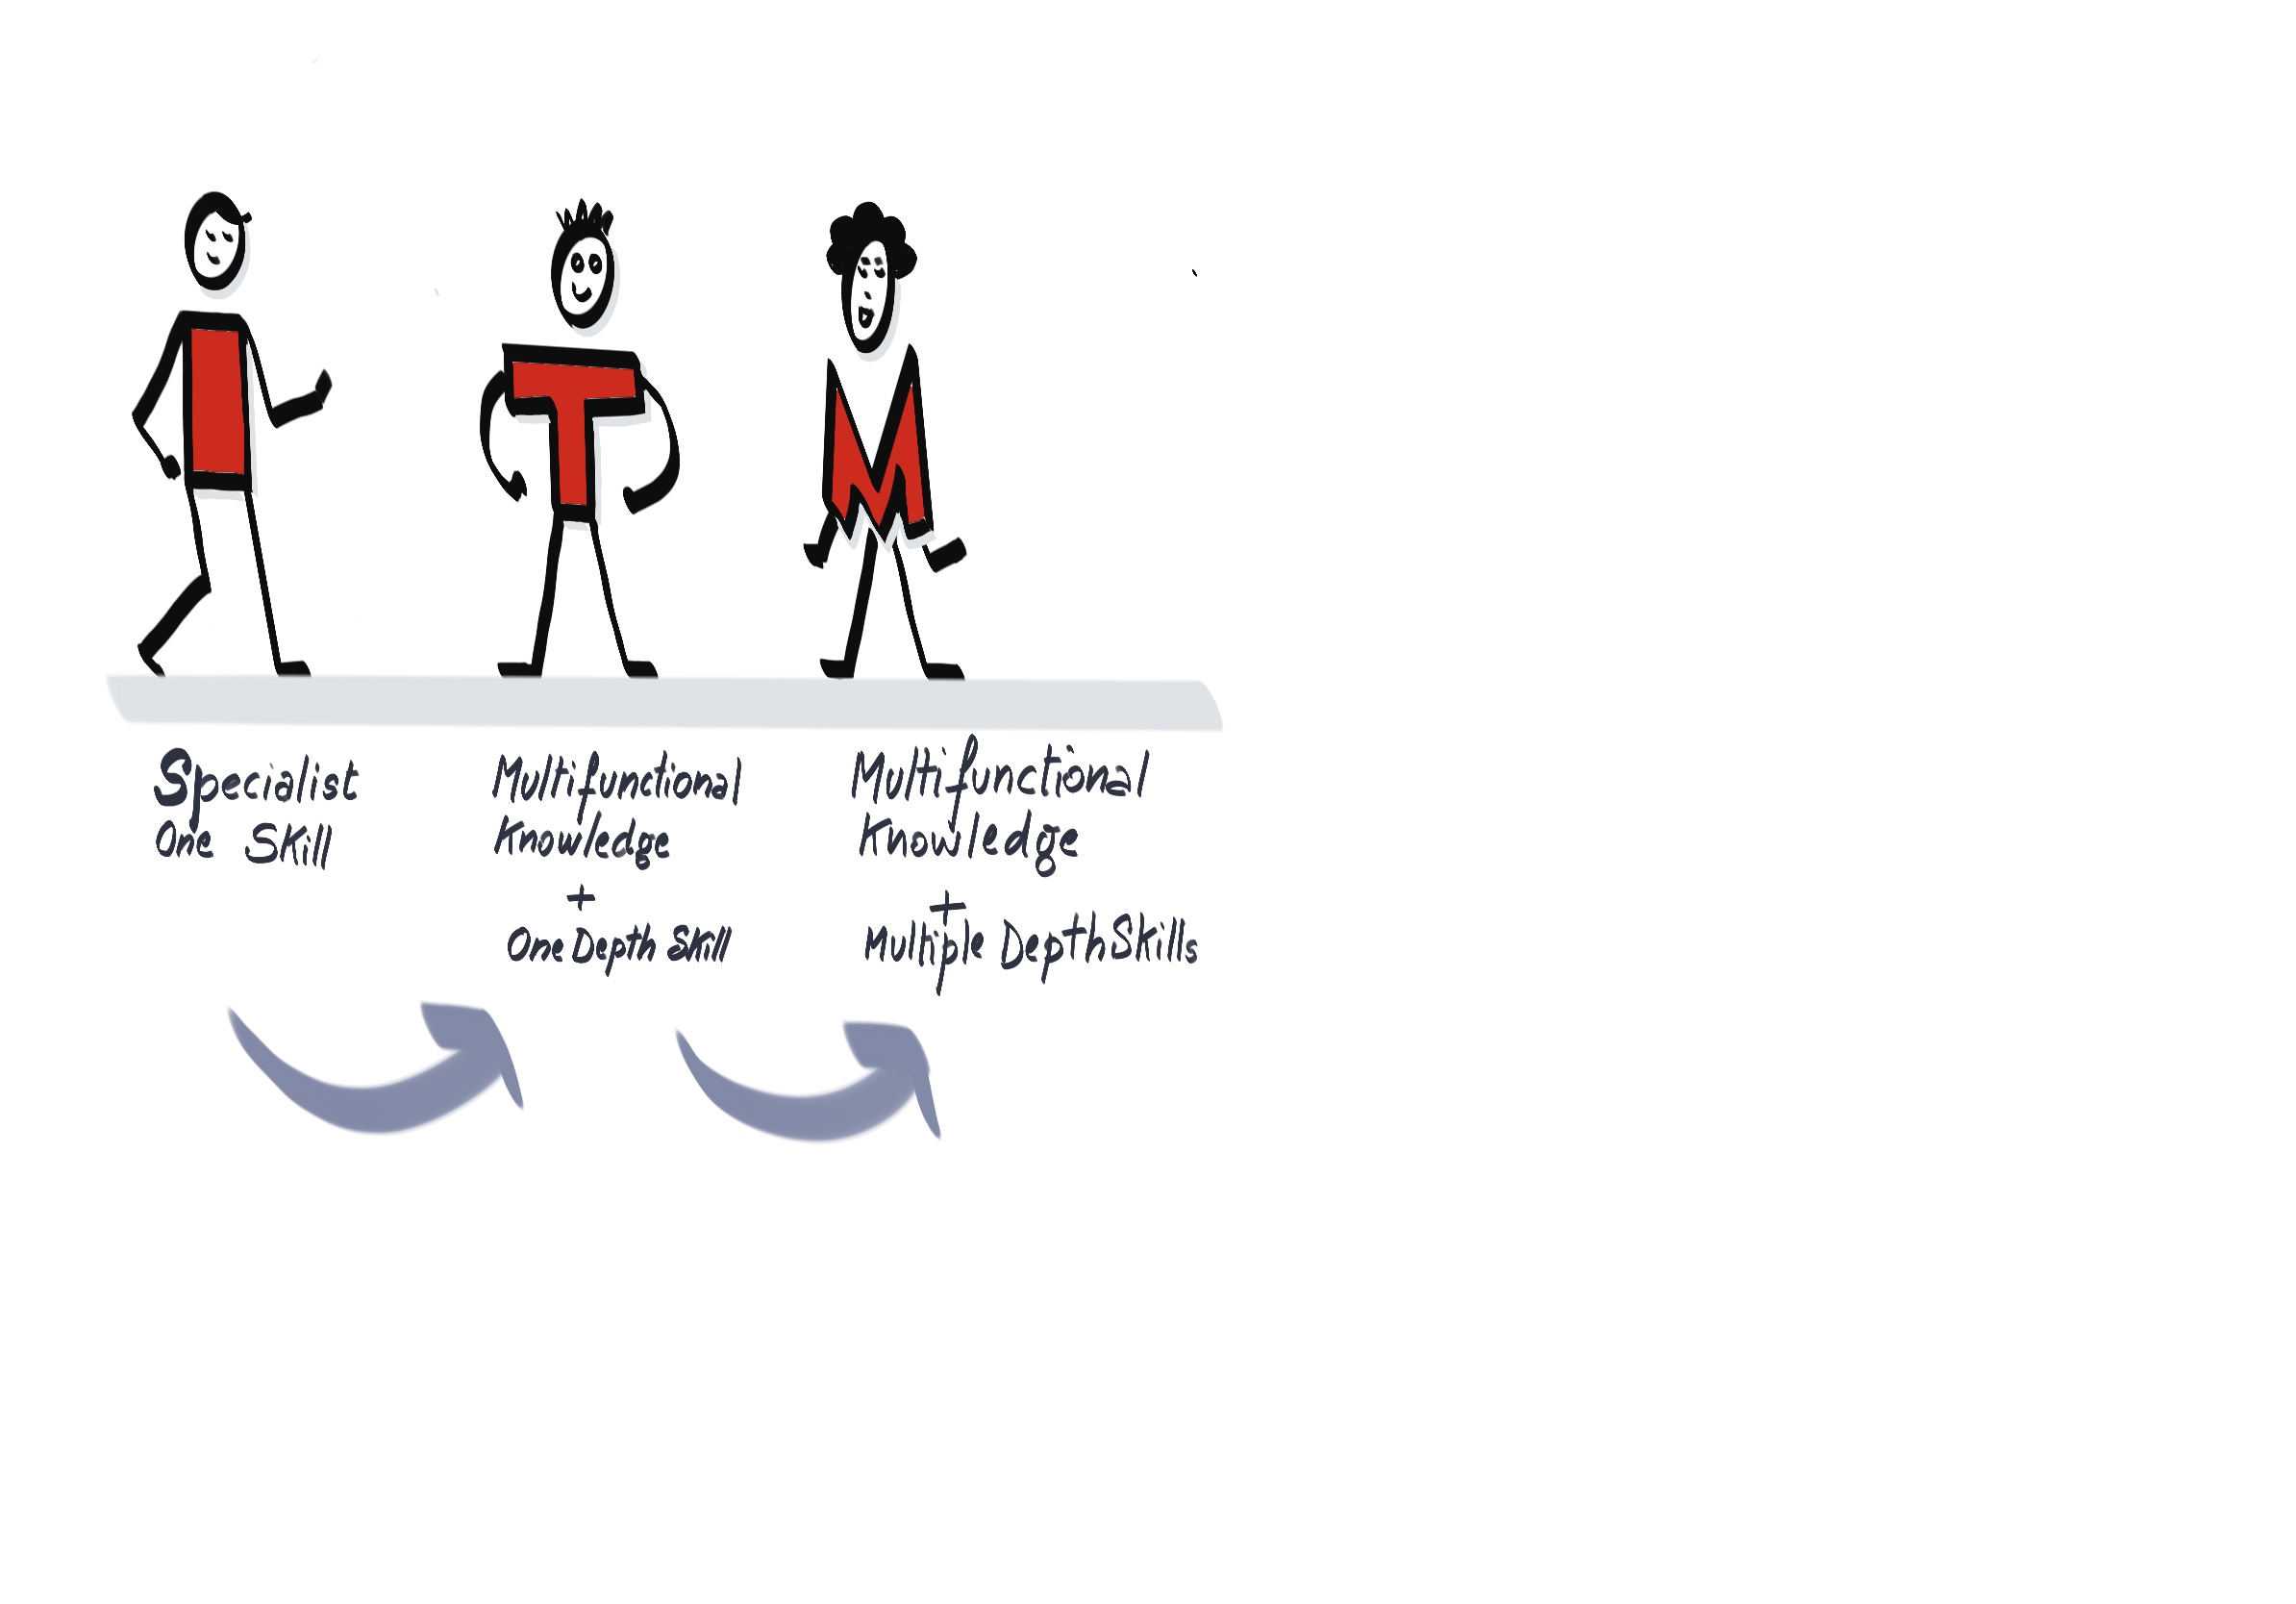 T
M
Specialist
One Skill
Multifunctional
Knowledge
+
One Depth Skill
Multifunctional
Knowledge
+
Multiple Depth Skills